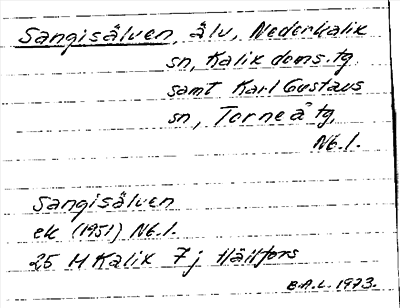 Sangisälven, älv, Nederkalix
sn, Kalix doms. tg
samt Karl Gustavs
sn, Torneå tg,
Nb. l.
Sangisälven
ek (1951) Nb. l.
25 M Kalix 7j
B.A.L. 1973.